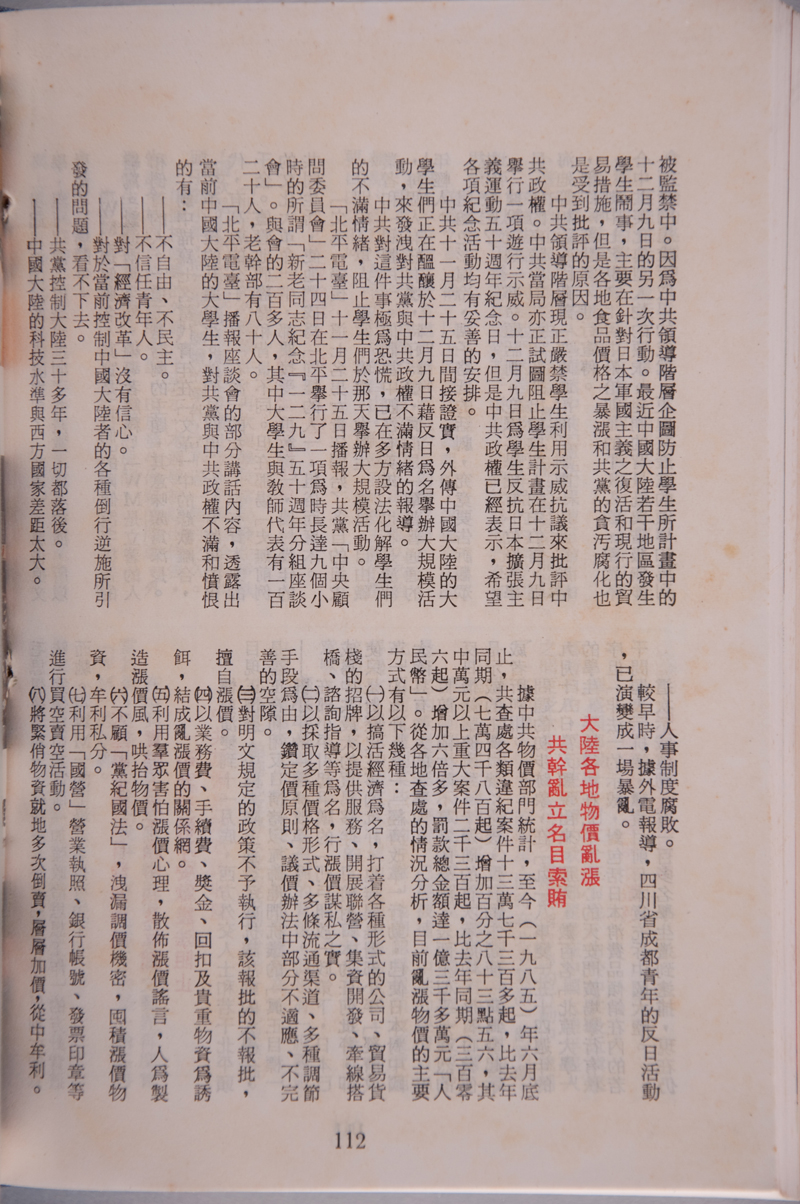 被監禁中。因爲中共領導階層企圖防止學生所計畫中的
十二月九日的另一次行動。最近中國大陸若干地區發生
學生鬧事，主要在針對日本軍國主義之復活和現行的貿
易措施，但是各地食品價格之暴漲和共黨的貪汚腐化也
是受到批評的原因。
中共領導階層現正嚴禁學生利用示威抗議來批評中
共政權。中共當局亦正試圖阻止學生計畫在十二月九日
舉行一項遊行示威。十二月九日爲學生反抗日本擴張主
義運動五十週年紀念日，但是中共政權已經表示，希望
各項紀念活動均有妥善的安排。
中共十一月二十五日間接證實，外傳中國大陸的大
學生們正在醞釀於十二月九日藉反日爲名舉辦大規模活
動，來發洩對共黨與中共政權不滿情緒的報導。
中共對這件事極爲恐慌，已在多方設法化解學生們
的不滿情緒，阻止學生們於那天舉辦大規模活動。
「北平電臺」十一月二十五日播報，共黨「中央顧
問委員會」二十四日在北平舉行了一項爲時長達九個小
時的所謂「新老同志紀念『一二九』五十週年分組座談
會」。與會的二百多人，其中大學生與教師代表有一百
二十人，老幹部有八十人。
「北平電臺」播報座談會的部分講話內容，透露出
當前中國大陸的大學生，對共黨與中共政權不滿和憤恨
的有：
——不自由、不民主。
——不信任青年人。
——對「經濟改革」沒有信心。
——對於當前控制中國大陸者的各種倒行逆施所引
發的問題，看不下去。
——共黨控制大陸三十多年，一切都落後。
——中國大陸的科技水準與西方國家差距太大。
——人事制度腐敗。
較早時，據外電報導，四川省成都青年的反日活動
，已演變成一場暴亂。
大陸各地物價亂漲
共幹亂立名目索賄
據中共物價部門統計，至今（一九八五）年六月底
止，共查處各類違紀案件十三萬七千三百多起，比去年
同期（七萬四千八百起）增加百分之八十三點五六，其
中萬元以上重大案件二千三百起，比去年同期（三百零
六起）增加六倍多，罰款總金額達一億三千多萬元「人
民幣」。從各地查處的情況分析，目前亂漲物價的主要
方式有以下幾種：
㈠以搞活經濟爲名，打着各種形式的公司、貿易貨
棧的招牌，以提供服務、開展聯營、集資開發、牽線搭
橋、諮詢指導等爲名，行漲價謀私之實。
㈡以採取多種價格形式、多條流通渠道、多種調節
手段爲由，鑽定價原則、議價辦法中部分不適應、不完
善的空隙。
㈢對明文規定的政策不予執行，該報批的不報批，
擅自漲價。
㈣以業務費、手續費、獎金、回扣及貴重物資爲誘
餌，結成亂漲價的關係網。
㈤利用羣眾害怕漲價心理，散佈漲價謠言，人爲製
造漲價風，哄抬物價。
㈥不顧「黨紀國法」，洩漏調價機密，囤積漲價物
資，牟利私分。
㈦利用「國營」營業執照、銀行帳號、發票印章等
進行買空賣空活動。
㈧將緊俏物資就地多次倒賣，層層加價，從中牟利。
112